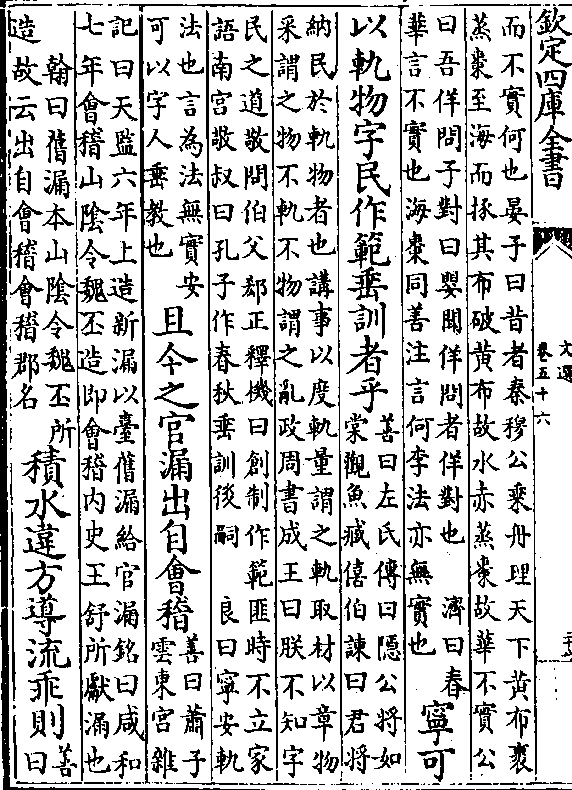 欽定四庫全書
文選
卷五十六
而不實何也晏子曰昔者秦穆公乘舟理天下黄布裹
蒸棗至海而捄其布破黄布故水赤蒸棗故華不實公
曰吾佯問子對曰嬰聞佯問者佯對也 濟曰春
華言不實也海棗同善注言何李法亦無實也
寧可
以軌物字民作範垂訓者乎
善曰左氏傳曰隱公將如
棠觀魚臧僖伯諫曰君將
納民於軌物者也講事以度軌量謂之軌取材以章物
采謂之物不軌不物謂之亂政周書成王曰朕不知字
民之道敬問伯父郄正釋機曰創制作範匪時不立家
語南宫敬叔曰孔子作春秋垂訓後嗣 良曰寧安軌
法也言為法無實安
可以字人垂教也
且今之官漏出自會稽
善曰蕭子
雲東宫雜
記曰天監六年上造新漏以臺舊漏給官漏銘曰咸和
七年會稽山陰令魏丕造即會稽内史王舒所獻漏也
翰曰舊漏本山陰令魏丕所
造故云出自會稽會稽郡名
積水違方導流乖則
善
曰